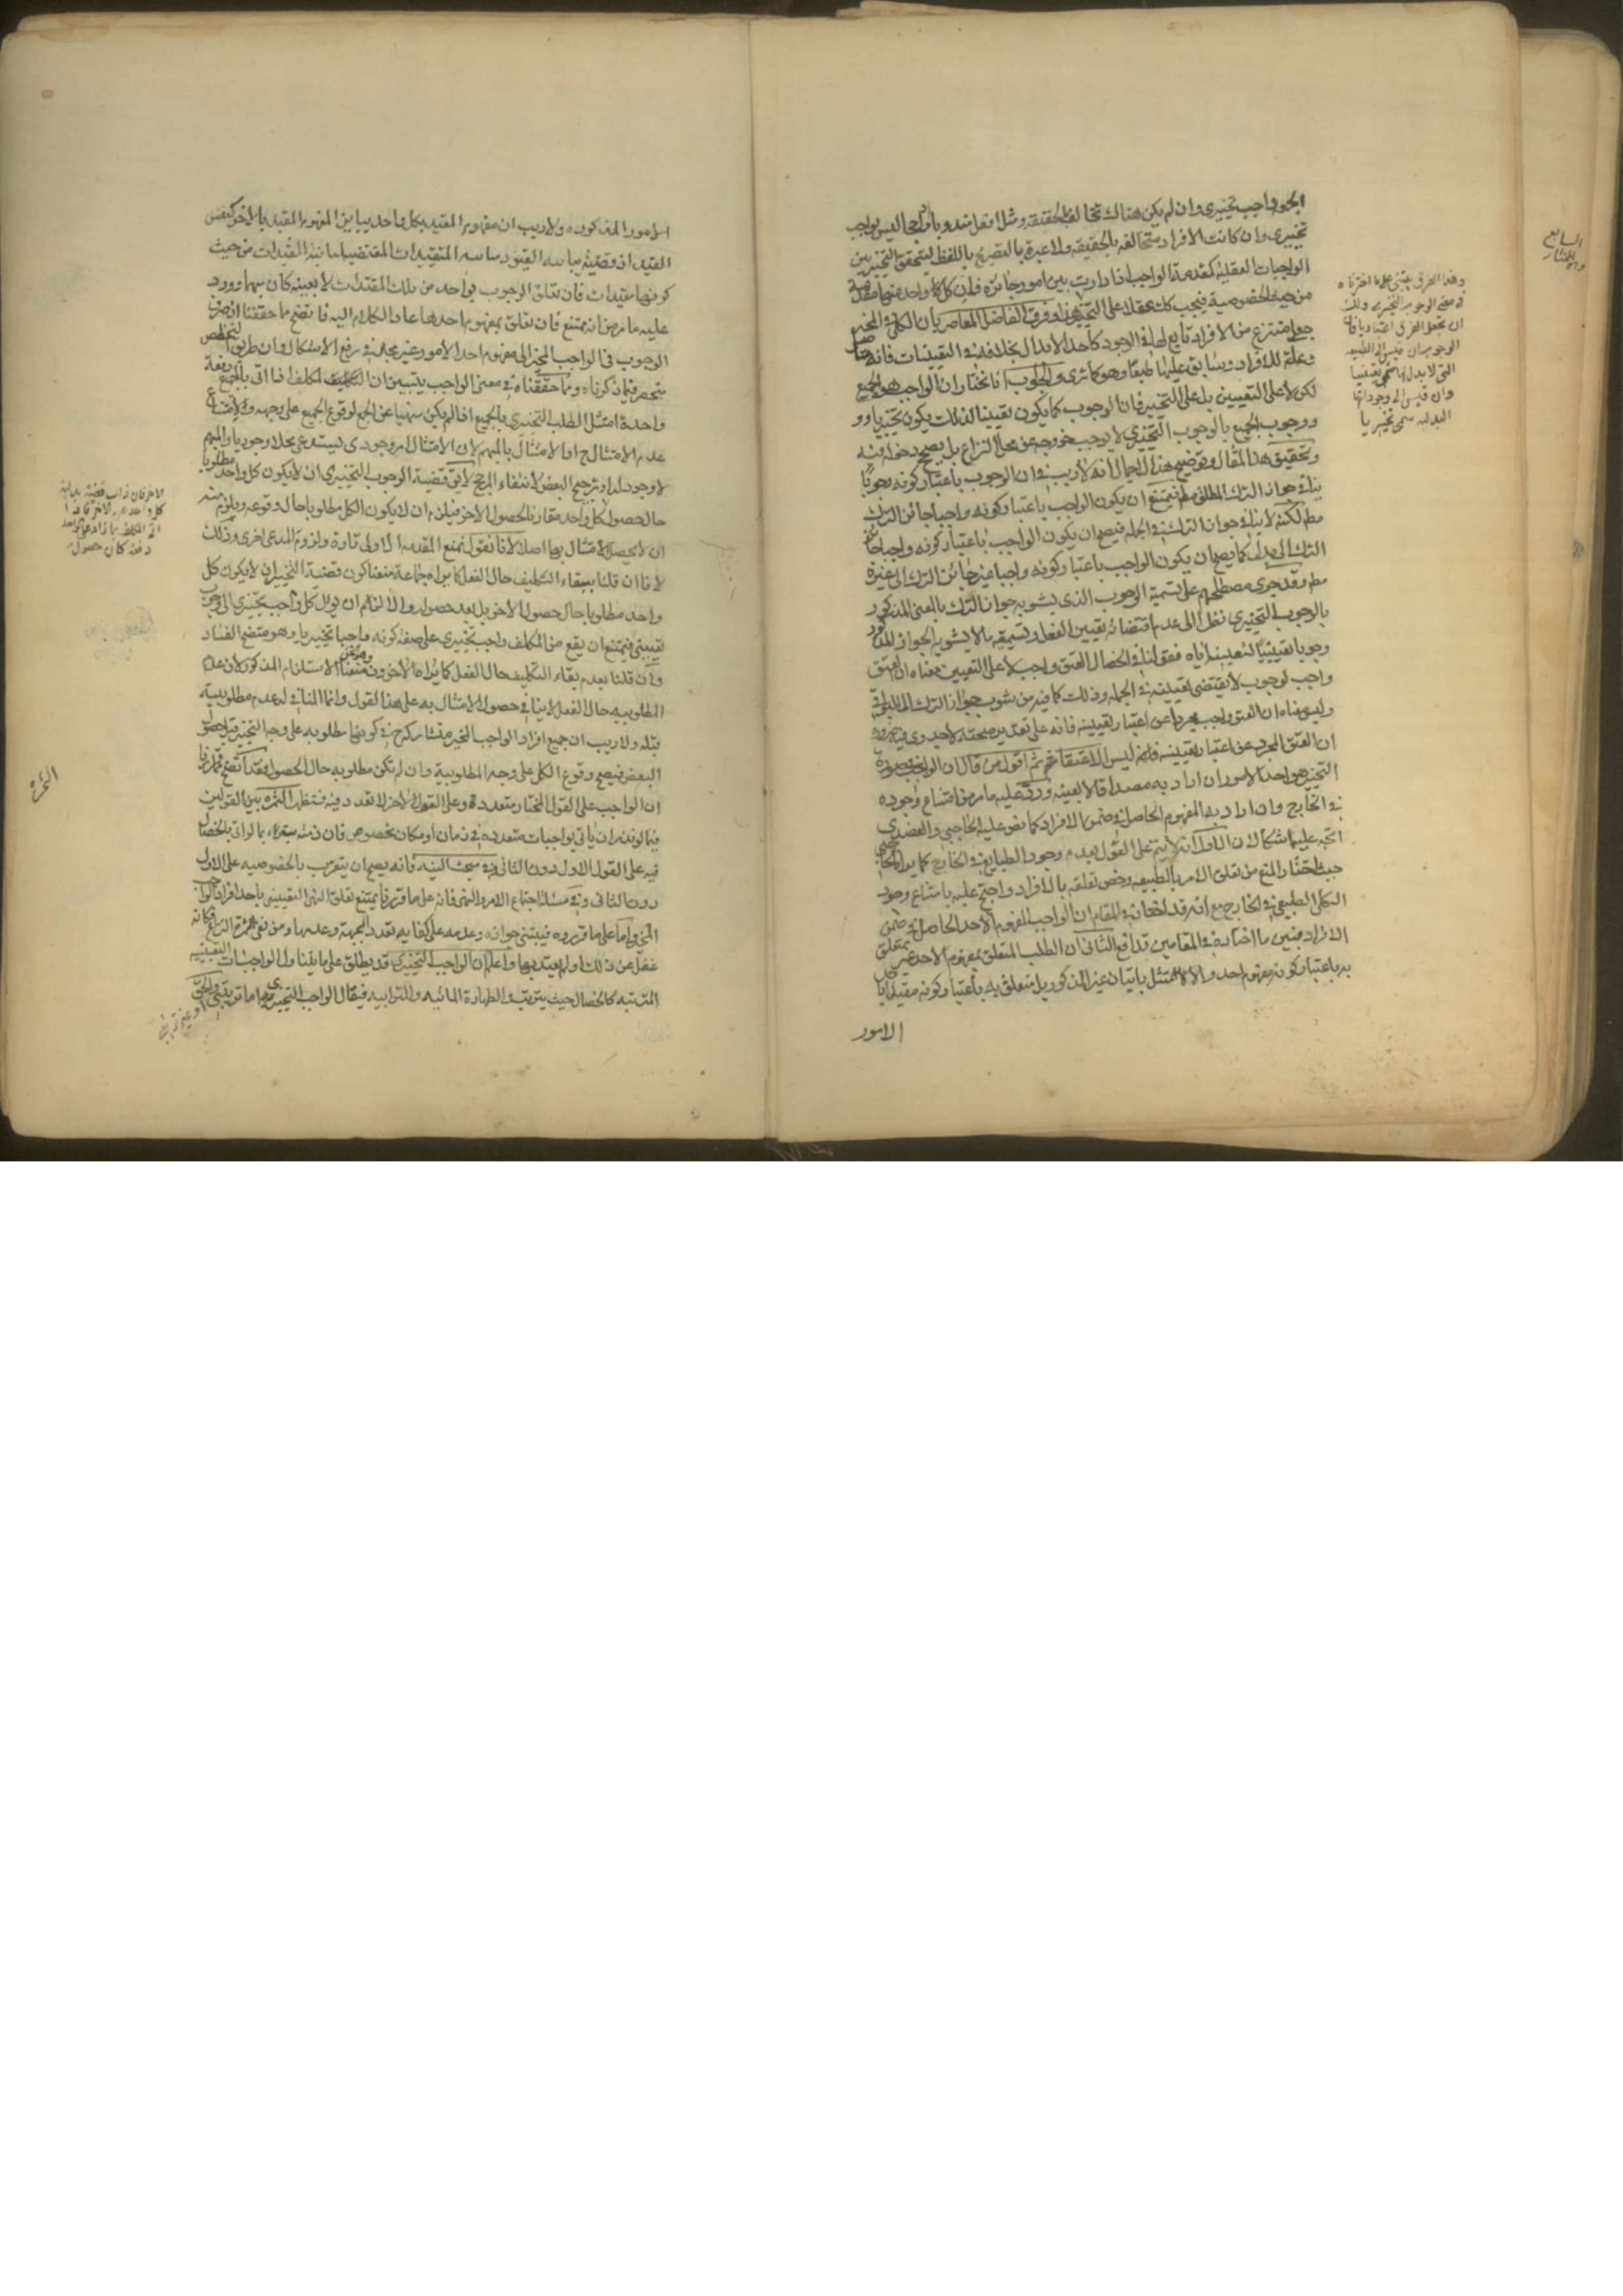 الجود واجب تخييري وان لم يكن هناك تخالف بالحقيقة ومثل افعل مندوبا او واجبا ليس بواجب
تخييري وان كانت الافراد متخالفة بالحقيقة ولا عبرة بالتصريح باللفظ ليتحقق التخيير بين
الواجبات العقلية كمقدمة الواجب اذا دارت بين امور جائزة فان كل واحد منها مقدمة
من حيث الخصوصية فيجب كك عقلا على التخيير هذا وفرق الفاضل المعاصر بان الكلي في المخير
جعلي منتزع من الافراد تابع لها في الوجود كاحد الابدال بخلافه في التعيينيات فانه متاصل
وعلة للافراد وسابق عليها طبعا وهو كما ترى والجواب انا نختار ان الواجب هو الجميع
لكن لا على التعيين بل على التخيير فان الوجوب كما يكون تعيينيا كذلك يكون تخييريا و
ووجوب الجميع بالوجوب التخييري لا يوجب خروجه عن محل النزاع بل يصحح دخوله فيه
وتحقيق هذا المقال وتوضيح هذا الحال انه لا ريب في ان الوجوب باعتبار كونه وجوبا
ينافي جواز الترك المطلق مط فيمتنع ان يكون الواجب باعتبار كونه واجبا جائز الترك
مط لكنه لا ينافي جواز الترك في الجملة فيصح ان يكون الواجب باعتبار كونه واجبا جائز
الترك الى بدل كما يصح ان يكون الواجب باعتبار كونه واجبا غير جائز الترك الى غيره
مط وقد جرى مصطلحهم على تسمية الوجوب الذي يشوبه جواز الترك بالمعنى المذكور
بالوجوب التخييري نظرا الى عدم اقتضائه تعيين الفعل وتسمية ما لا يشوبه الجواز المذكور
وجوبا تعيينيا لتعيينه اياه فقولنا في الخصال العتق واجب لا على التعيين معناه ان العتق
واجب لوجوب لا يقتضي تعيينه في الجملة وذلك كما فيه من شوب جواز الترك الى البواقي
وليس معناه ان العتق واجب مجردا عن اعتبار تعيينه فانه على تقدير صحته لا يجدي فيه ضرورة
ان العتق المجرد عن اعتبار تعيينه ليس الا عتقا ثم اقول من قال ان الواجب في صورة
التخيير هو احد الامور ان اراد به مصداقا لا بعينه ورد عليه ما مر من امتناع وجوده
في الخارج وان اراد به المفهوم الحاصل في ضمن الافراد كما نص عليه الحاجبي والعضدي
اتجه عليه اشكالان الاول انه لا يتم على القول بعدم وجود الطبايع في الخارج كما يراه الحاجبي
حيث اختار المنع من تعلق الامر بالطبيعة وخص تعلقه بالافراد واحتج عليه بامتناع وجود
الكلي الطبيعي في الخارج مع انه قد اختار في المقام ان الواجب المفهوم الاحد الحاصل في ضمن
الافراد فبين ما اختاره في المقامين تدافع الثاني ان الطلب المتعلق بمفهوم الاحد غير متعلق
به باعتبار كونه مفهوم احد والا لامتثل باتيان غير المذكور بل متعلق به باعتبار كونه مقيدا باحد
الامور
وهذا الفرق يبتنى على ما اخترناه
في معنى الوجوب التخييري ولك
ان تجعل الفرق اعتباريا فان
الوجوب ان قيس الى الطبيعة
التي لا بدل لها سمي تعيينيا
وان قيس الى وجوداتها
البدلية سمي تخييريا
الامور المذكورة ولا ريب ان مفهوم المقيد بكل واحد يباين المفهوم المقيد بالاخر
كونها مقيدات فان تعلق الوجوب بواحد من تلك المقيدات لا بعينه كان مبهما وورد
عليه ما مر من انه ممتنع فان تعلق بمفهوم احدها عاد الكلام اليه فاتضح ما حققنا ان صرف
الوجوب في الواجب المخير الى مفهوم احد الامور غير مجد في رفع الاشكال وان طريق التخلص
منحصر فيما ذكرناه ومما حققناه في معنى الواجب يتبين ان المكلف اذا اتى بالجميع دفعة
واحدة امتثل الطلب التخييري بالجميع اذا لم يكن منهيا عن الجمع لوقوع الجميع على وجهه ولامتناع
عدم الامتثال ح اما الامتثال بالمبهم لان الامتثال امر وجودي يستدعي محلا وجوديا والمبهم
لا وجود له او ترجيح البعض لانتفاء المرجح لا يق قضية الوجوب التخييري ان لا يكون كل واحد مطلوبا
حال حصول كل واحد مقارنا لحصول الاخر فيلزم ان لا يكون الكل مطلوبا حال وقوعه ويلزم منه
ان لا يحصل الامتثال بها اصلا لانا نقول نمنع المقدمة الاولى تارة ولزوم المدعى اخرى وذلك
لانا ان قلنا ببقاء التكليف حال الفعل كما يراه جماعة منعنا كون قضية التخيير ان لا يكون كل
واحد مطلوبا حال حصول الاخر بل بعد حصوله والا لزم ان يؤل كل واجب تخييري الى وجوب
تعييني فيمتنع ان يقع من المكلف واجب تخييري على صفة كونه واجبا تخييريا وهو متضح الفساد
وان قلنا بعدم بقاء التكليف حال الفعل كما يراه الاخرون منعنا الاستلزام المذكور لان عدم
المطلوبية حال الفعل لا ينافي حصول الامتثال به على هذا القول وانما المنافي له عدم مطلوبيته
قبله ولا ريب ان جميع افراد الواجب المخير متشاركة ح في كونها مطلوبة على وجه التخيير قبل حصول
البعض فيصح وقوع الكل على وجه المطلوبية وان لم تكن مطلوبة حال الحصول فقد اتضح مما قررنا
ان الواجب على القول المختار متعددة وعلى القول الاخر لا تعدد فيه فتظهر الثمرة بين القولين
فيما لو نذر ان ياتي بواجبات متعددة في زمان او مكان مخصوص فان ذمته تبرء بما لو اتى بالخصال
فيه على القول الاول دون الثاني وفي مبحث النية فانه يصح ان يتقرب بالخصوصية على الاول
دون الثاني وفي مسئلة اجتماع الامر والنهي فانه على ما قررنا يمتنع تعلق النهي التعييني باحد افراد الواجب
المخير واما على ما قرروه فيبتنى جوازه وعدمه على كفاية تعدد الجهة وعدمها ومن نفى ثمرة النزاع فكانه
غفل عن ذلك او لم يعتد بها واعلم ان الواجب التخييري قد يطلق على ما يتناول الواجبات التعيينية
المترتبة كالخصال حيث يترتب والطهارة المائية والترابية فيقال الواجب التخييري اما ترتيبي
الثمرة